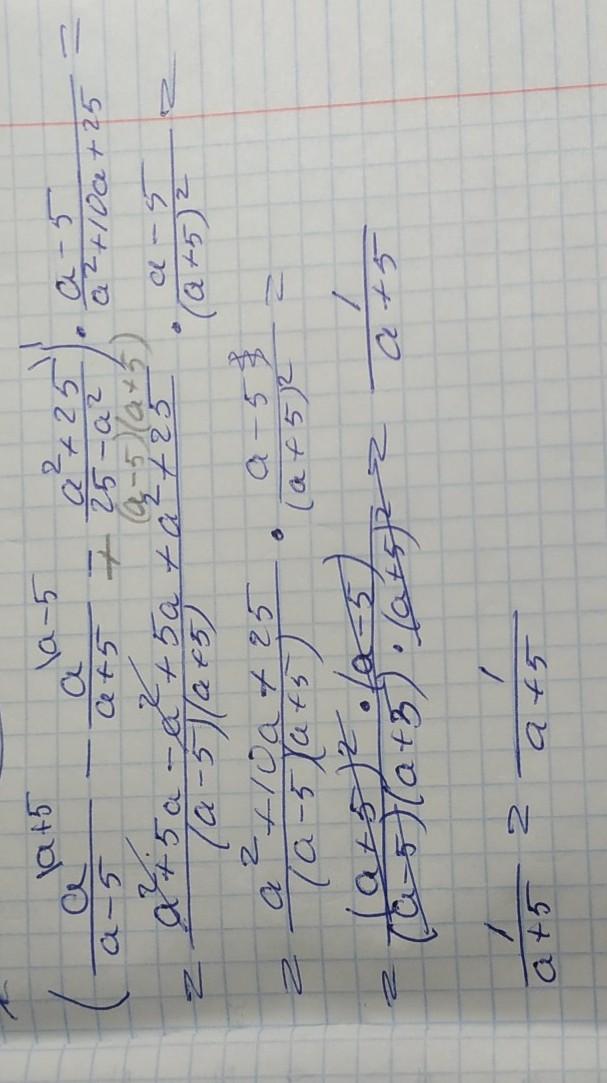 ( a/(a-5) \a+5 - a/(a+5) \a-5 - + (a²+25)/(25-a²) ) · (a-5)/(a²+10a+25) =
(a-5)(a+5)
= (a²+5a-a²+5a+a²+25)/((a-5)(a+5)) · (a-5)/(a+5)² =
= (a²+10a+25)/((a-5)(a+5)) · (a-5)/(a+5)² =
= ((a+5)²·(a-5))/((a-5)(a+5)·(a+5)²) = 1/(a+5)
1/(a+5) = 1/(a+5)